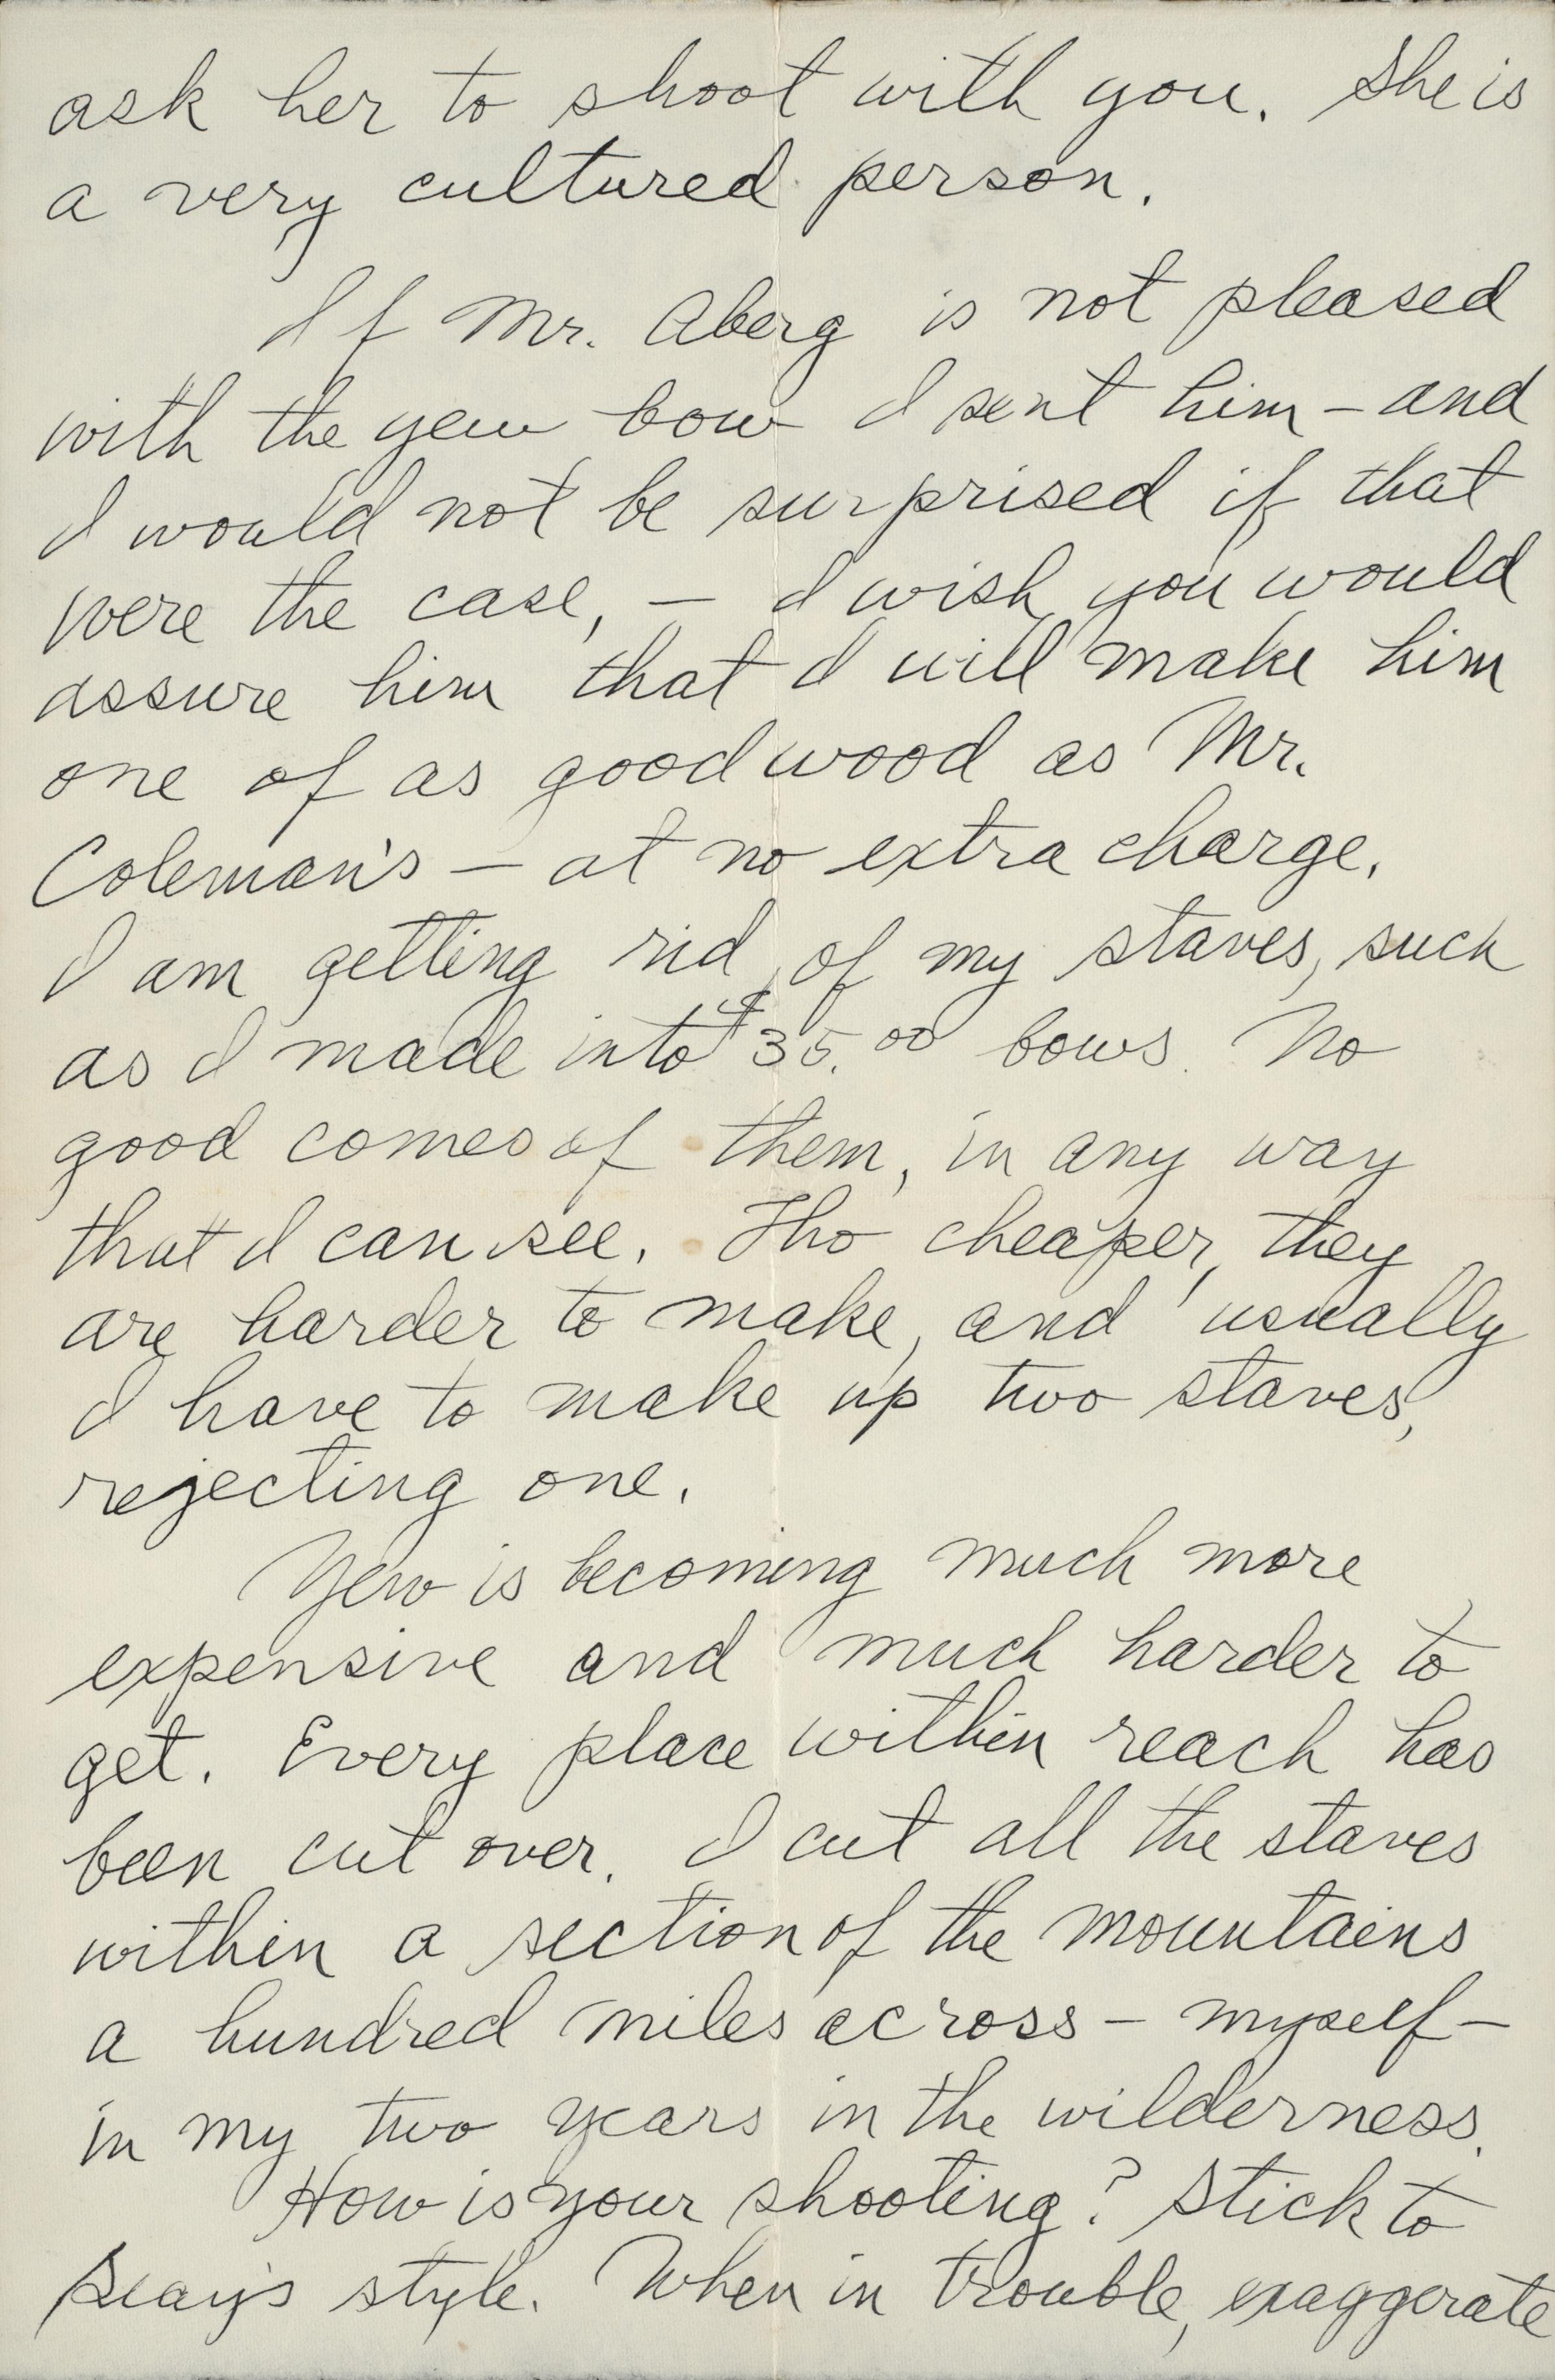 ask her to shoot with you. She is
a very cultured person.
If Mr. Aberg is not pleased
with the yew bow I sent him – and
I would not be surprised if that
were the case, – I wish you would
assure him that I will make him
one of as good wood as Mr.
Coleman's – at no extra charge.
I am getting rid of my staves, such
as I made into $35.00 bows. No
good comes of them, in any way
that I can see. Tho cheaper, they
are harder to make, and usually
I have to make up two staves,
rejecting one.
Yew is becoming much more
expensive and much harder to
get. Every place within reach has
been cut over. I cut all the staves
within a section of the mountains
a hundred miles across – myself –
in my two years in the wilderness.
How is your shooting? Stick to
style. When in trouble, exaggerate